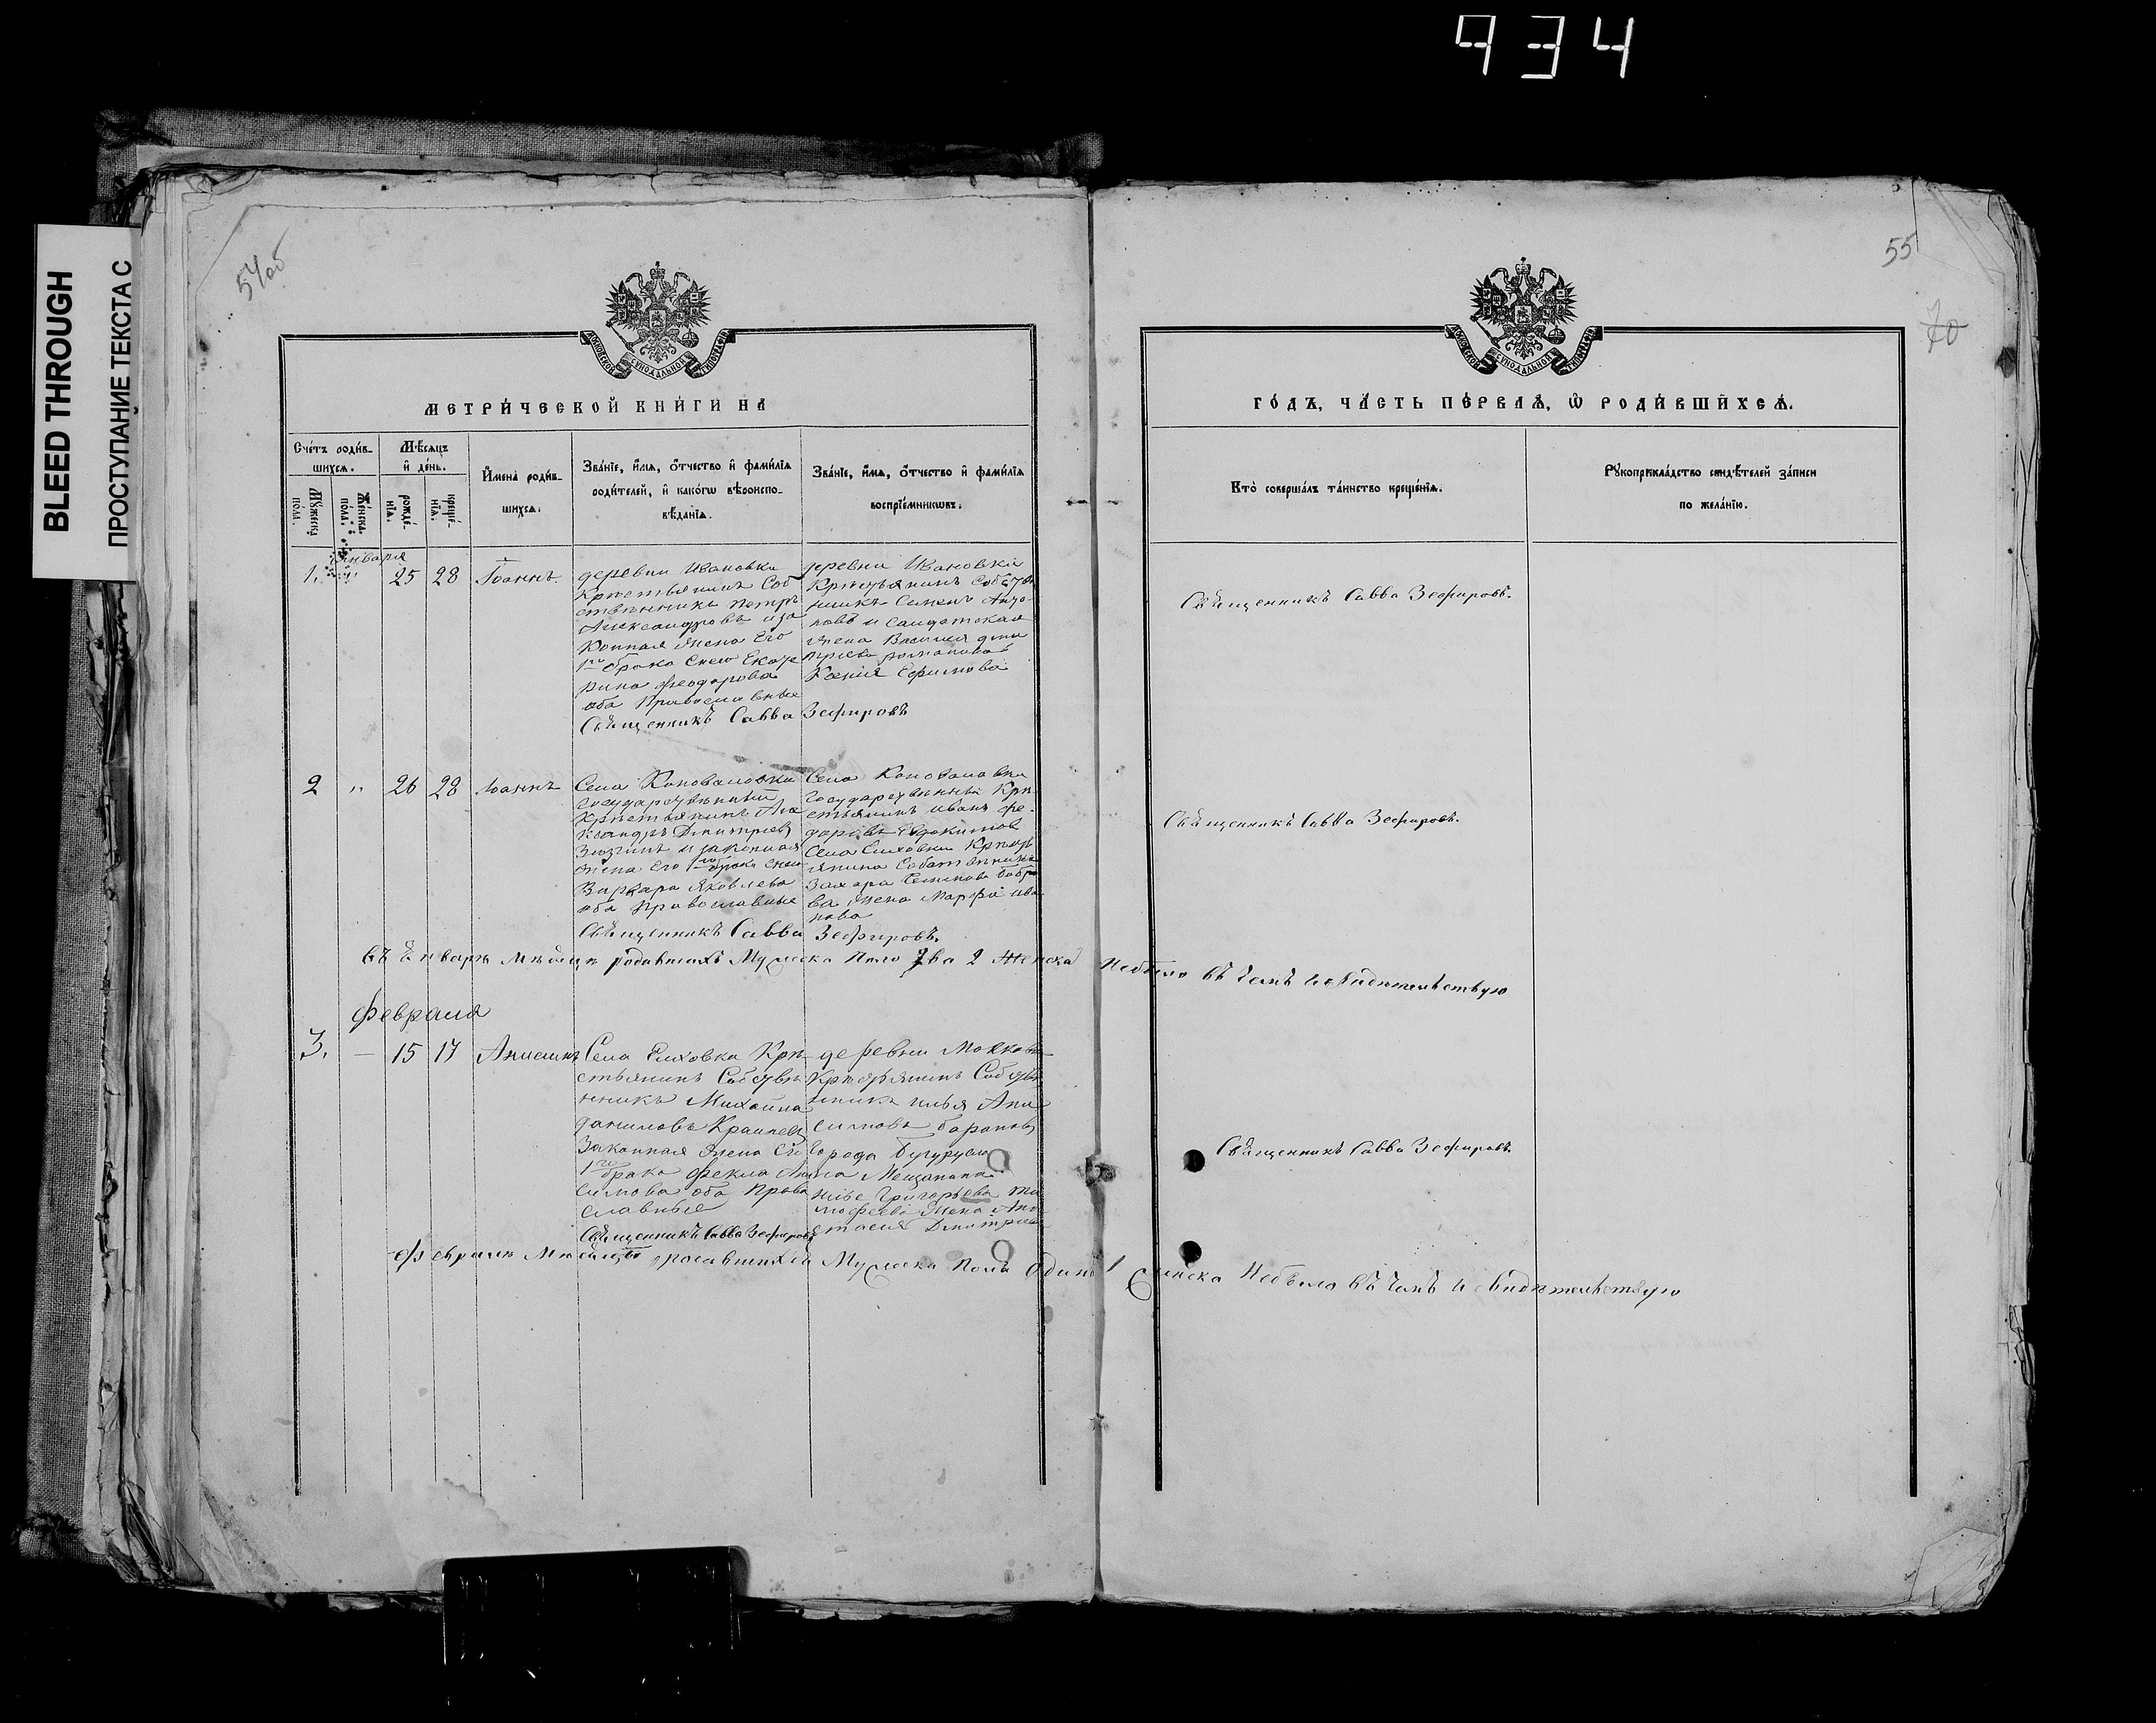 934
BLEED THROUGH
ПРОСТУПАНИЕ ТЕКСТА С
54об
55
70
МОСКОВСКОЙ СѴНОДАЛЬНОЙ ТИПОГРАФІИ
МОСКОВСКОЙ СѴНОДАЛЬНОЙ ТИПОГРАФІИ
МЕТРИ́ЧЕСКОЙ КНИ́ГИ НА
ГО́ДЪ, ЧА́СТЬ ПЕ́РВАѦ, Ѡ РОДИ́ВШИХСѦ.
Сче́тъ роди́в-
шихсѧ.
Мꙋ́жеска по́ла.
Же́нска по́ла.
Мѣ́сѧцъ
и҆ де́нь.
рожде́-
нїѧ.
креще́-
нїѧ.
И҆мена̀ роди́в-
шихсѧ.
Зва́нїе, и҆́мѧ, ѻ҆́тчество и҆ фами́лїѧ
роди́телей, и҆ како́гѡ вѣроиспо-
вѣ́данїѧ.
Зва́нїе, и҆́мѧ, ѻ҆́тчество и҆ фами́лїѧ
воспрїе́мникѡвъ.
Кто̀ соверша́лъ та́инство креще́нїѧ.
Рꙋкоприкла́дство свидѣ́телей за́писи
по жела́нїю.
Января
1. " 25 28 Іоаннъ
деревни Ивановки
Крестьянинъ Соб
ственникъ Петръ
Александровъ и за
конная жена Его
1го брака
Екате
рина Феодорова
оба Православные
Священникъ Савва Зефировъ
деревни Ивановки
Крестьянинъ Собств
никъ Семенъ
и солдатская
жена Василия Дми
Ксения Ефимова
Священникъ Савва Зефировъ.
2 " 26 28 Іоаннъ
Села Коноваловки
Государственный
Крестьянинъ Але
ксандръ Дмитриев
и законная
жена Его 1го брака
Варвара Яковлева
оба Православные
Священникъ Савва Зефировъ.
Села Коноваловки
Государственный Кре
стьянинъ Иванъ Фе
доровъ Евдокимов
Села Елховки Крест
янина Собственника
Захара
жена Марфа Ива
нова
Священникъ Савва Зефировъ.
въ Январе месяце родившихъ Мужеска Пола Два 2 Женска Небыло въ чемъ и свидетельствую
Февраля
3. — 15 17
Села Елховка Кре
стьянинъ Собстве
нникъ Михаила
Даниловъ
Законная жена Его
1го брака Фекла Ани
симова оба Право
славные
Священникъ Савва Зефировъ
деревни
Крестьянинъ Собстве
нника Илья Ани
симовъ Баранов
Города Бугурусла
на Мещанина
Григорьева Ти
мофеева жена Ана
стасия Дмитриева
Священникъ Савва Зефировъ.
Феврале месяце родившихся Мужеска Пола Одинъ 1 Женска Небыло въ чемъ и свидетельствую